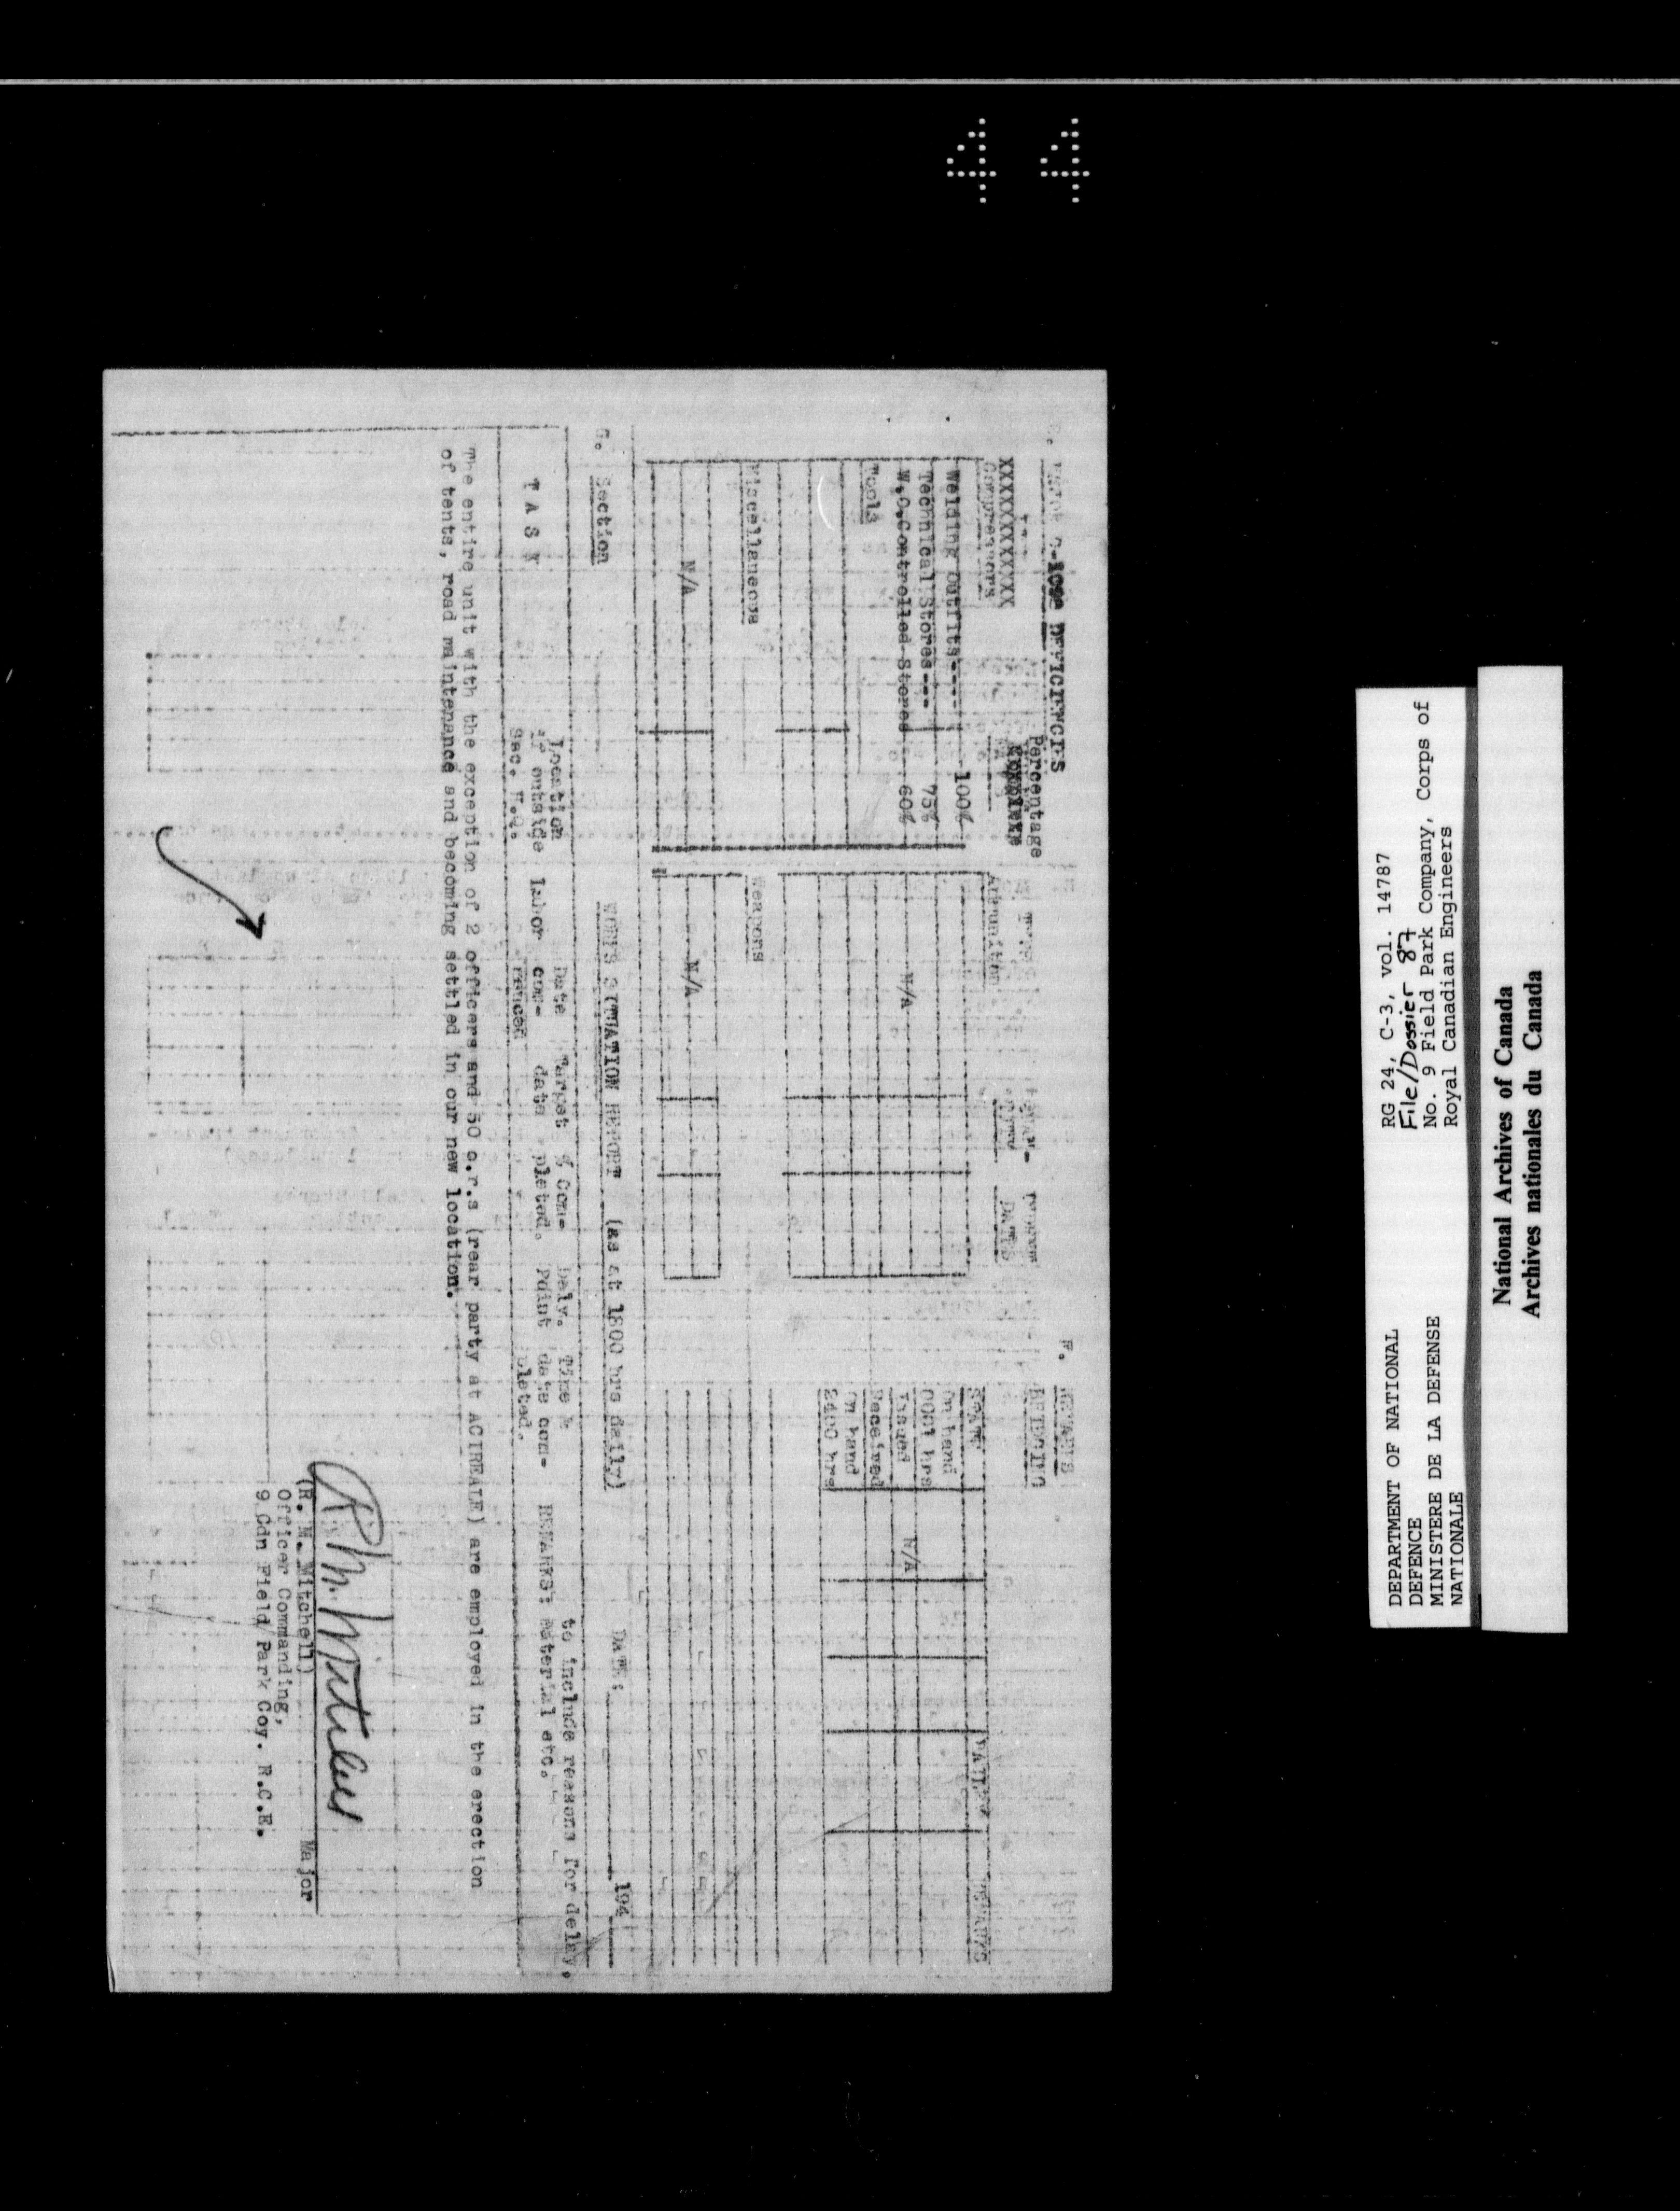 44
DEFICIENCIES
Percentage
XXXXXXXXXXXX
Compressors
Welding Outfits---- 100%
Technical Stores--- 75%
W.O.Controlled Stores 60%
Tools
Miscellaneous
N/A
Ammunition
N/A
Weapons
N/A
F.
On hand
0001 hrs
Issued
Received
On hand
2400 hrs
N/A
G. Section
WORKS SITUATION REPORT (as at 1800 hrs daily)
DATE: 194
TASK
Location if outside Sec. H.Q.
Labor
Date commenced
Target date
% Completed.
Dely. Point
Time & date completed.
REMARKS: to include reasons for delay, Material etc.
The entire unit with the exception of 2 officers and 50 o.r.s (rear party at ACIREALE) are employed in the erection
of tents, road maintenance and becoming settled in our new location.
R.M. Mitchell
(R. M. Mitchell) Major
Officer Commanding,
9 Cdn Field Park Coy. R.C.E.
DEPARTMENT OF NATIONAL
DEFENCE
MINISTERE DE LA DEFENSE
NATIONALE
RG 24, C-3, vol. 14787
File/Dossier 87
No. 9 Field Park Company, Corps of
Royal Canadian Engineers
National Archives of Canada
Archives nationales du Canada